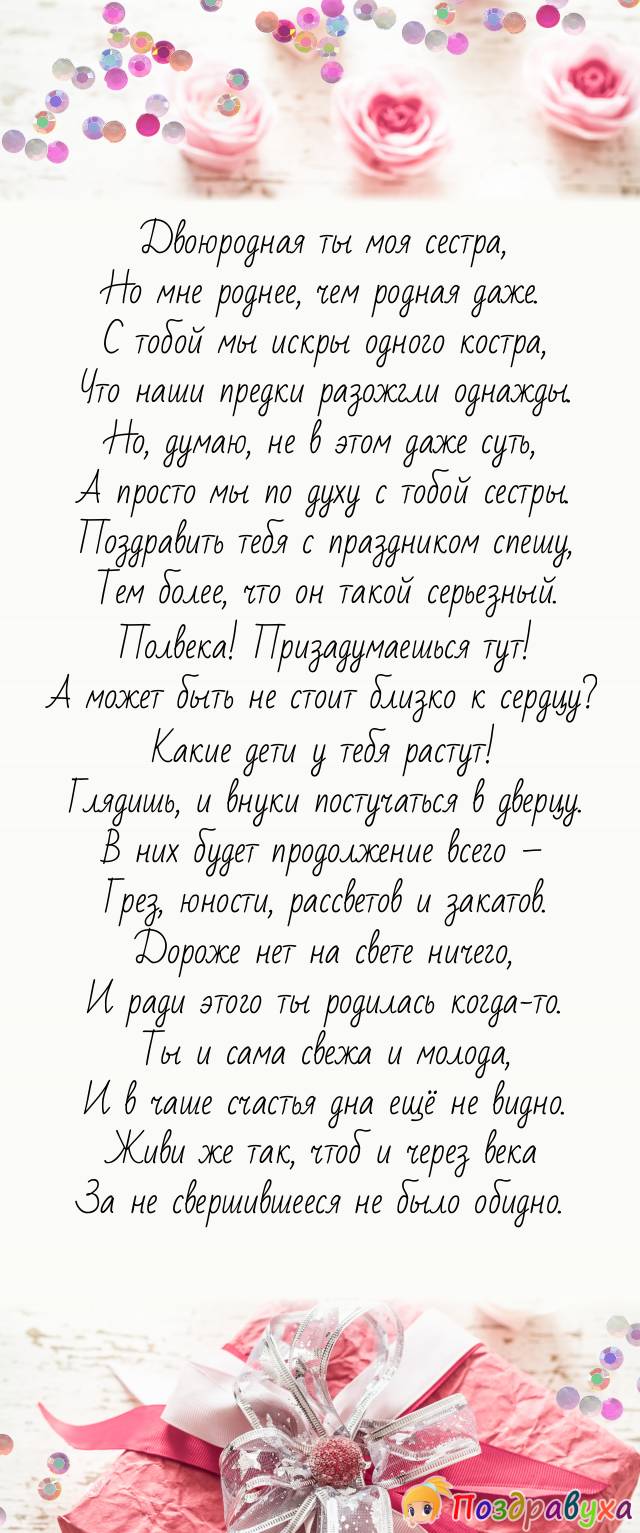 Двоюродная ты моя сестра,
Но мне роднее, чем родная даже.
С тобой мы искры одного костра,
Что наши предки разожгли однажды.
Но, думаю, не в этом даже суть,
А просто мы по духу с тобой сестры.
Поздравить тебя с праздником спешу,
Тем более, что он такой серьезный.
Полвека! Призадумаешься тут!
А может быть не стоит близко к сердцу?
Какие дети у тебя растут!
Глядишь, и внуки постучаться в дверцу.
В них будет продолжение всего –
Грез, юности, рассветов и закатов.
Дороже нет на свете ничего,
И ради этого ты родилась когда-то.
Ты и сама свежа и молода,
И в чаше счастья дна ещё не видно.
Живи же так, чтоб и через века
За не свершившееся не было обидно.
Поздравуха